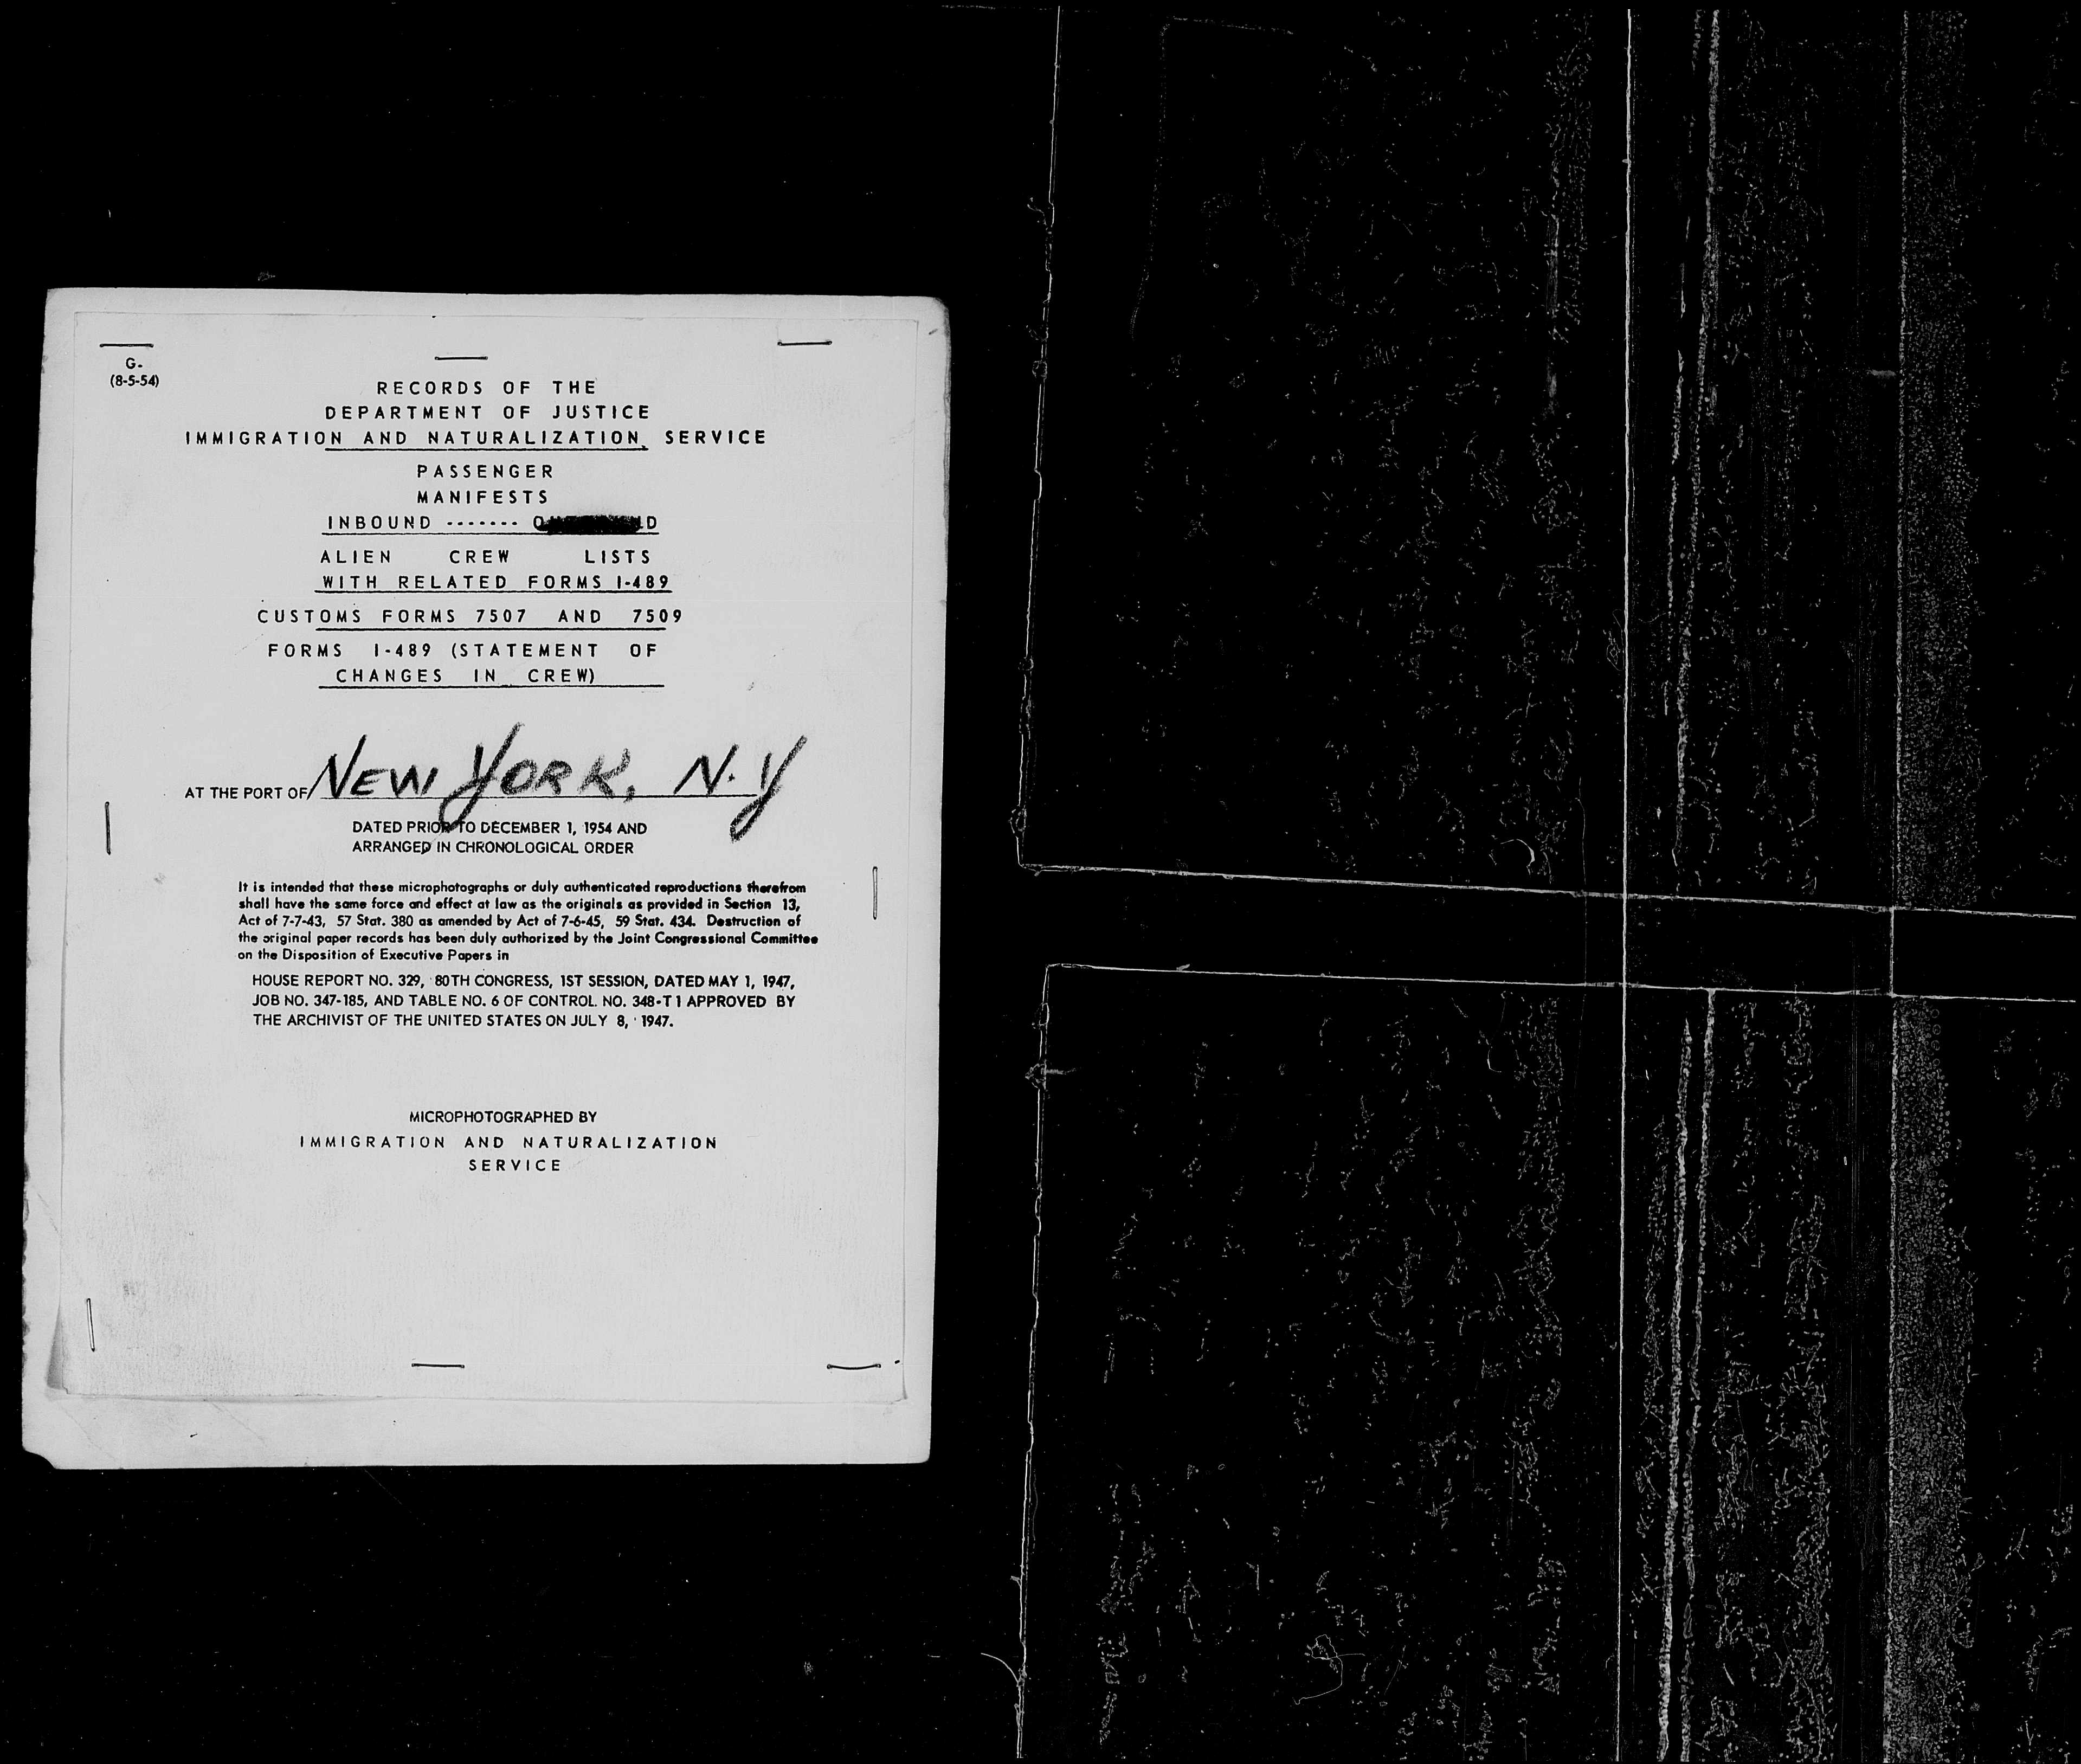 G-
(8-5-54)
RECORDS OF THE
DEPARTMENT OF JUSTICE
IMMIGRATION AND NATURALIZATION SERVICE
PASSENGER
MANIFESTS
INBOUND ------- O D
ALIEN CREW LISTS
WITH RELATED FORMS I-489
CUSTOMS FORMS 7507 AND 7509
FORMS I-489 (STATEMENT OF
CHANGES IN CREW)
AT THE PORT OF NEW YORK, N.Y
DATED PRIOR TO DECEMBER 1, 1954 AND
ARRANGED IN CHRONOLOGICAL ORDER
It is intended that these microphotographs or duly authenticated reproductions therefrom
shall have the same force and effect at law as the originals as provided in Section 13,
Act of 7-7-43, 57 Stat. 380 as amended by Act of 7-6-45, 59 Stat. 434. Destruction of
the original paper records has been duly authorized by the Joint Congressional Committee
on the Disposition of Executive Papers in
HOUSE REPORT NO. 329, 80TH CONGRESS, 1ST SESSION, DATED MAY 1, 1947,
JOB NO. 347-185, AND TABLE NO. 6 OF CONTROL NO. 348-T1 APPROVED BY
THE ARCHIVIST OF THE UNITED STATES ON JULY 8, 1947.
MICROPHOTOGRAPHED BY
IMMIGRATION AND NATURALIZATION
SERVICE